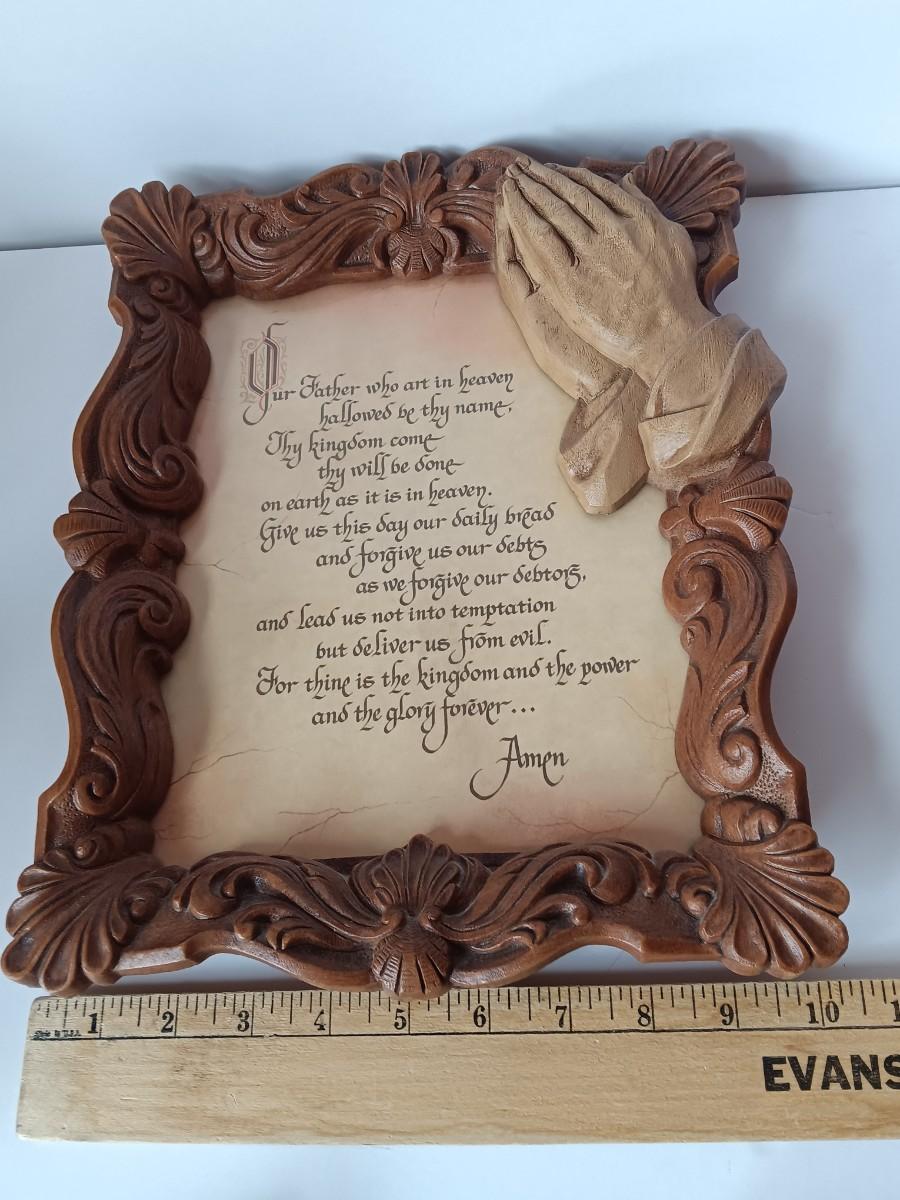 Our Father who art in heaven
hallowed be thy name,
Thy kingdom come
thy will be done
on earth as it is in heaven.
Give us this day our daily bread
and forgive us our debts
as we forgive our debtors,
and lead us not into temptation
but deliver us from evil.
For thine is the kingdom and the power
and the glory forever...
Amen
1 2 3 4 5 6 7 8 9 10 1
MADE IN U.S.A.
EVANS